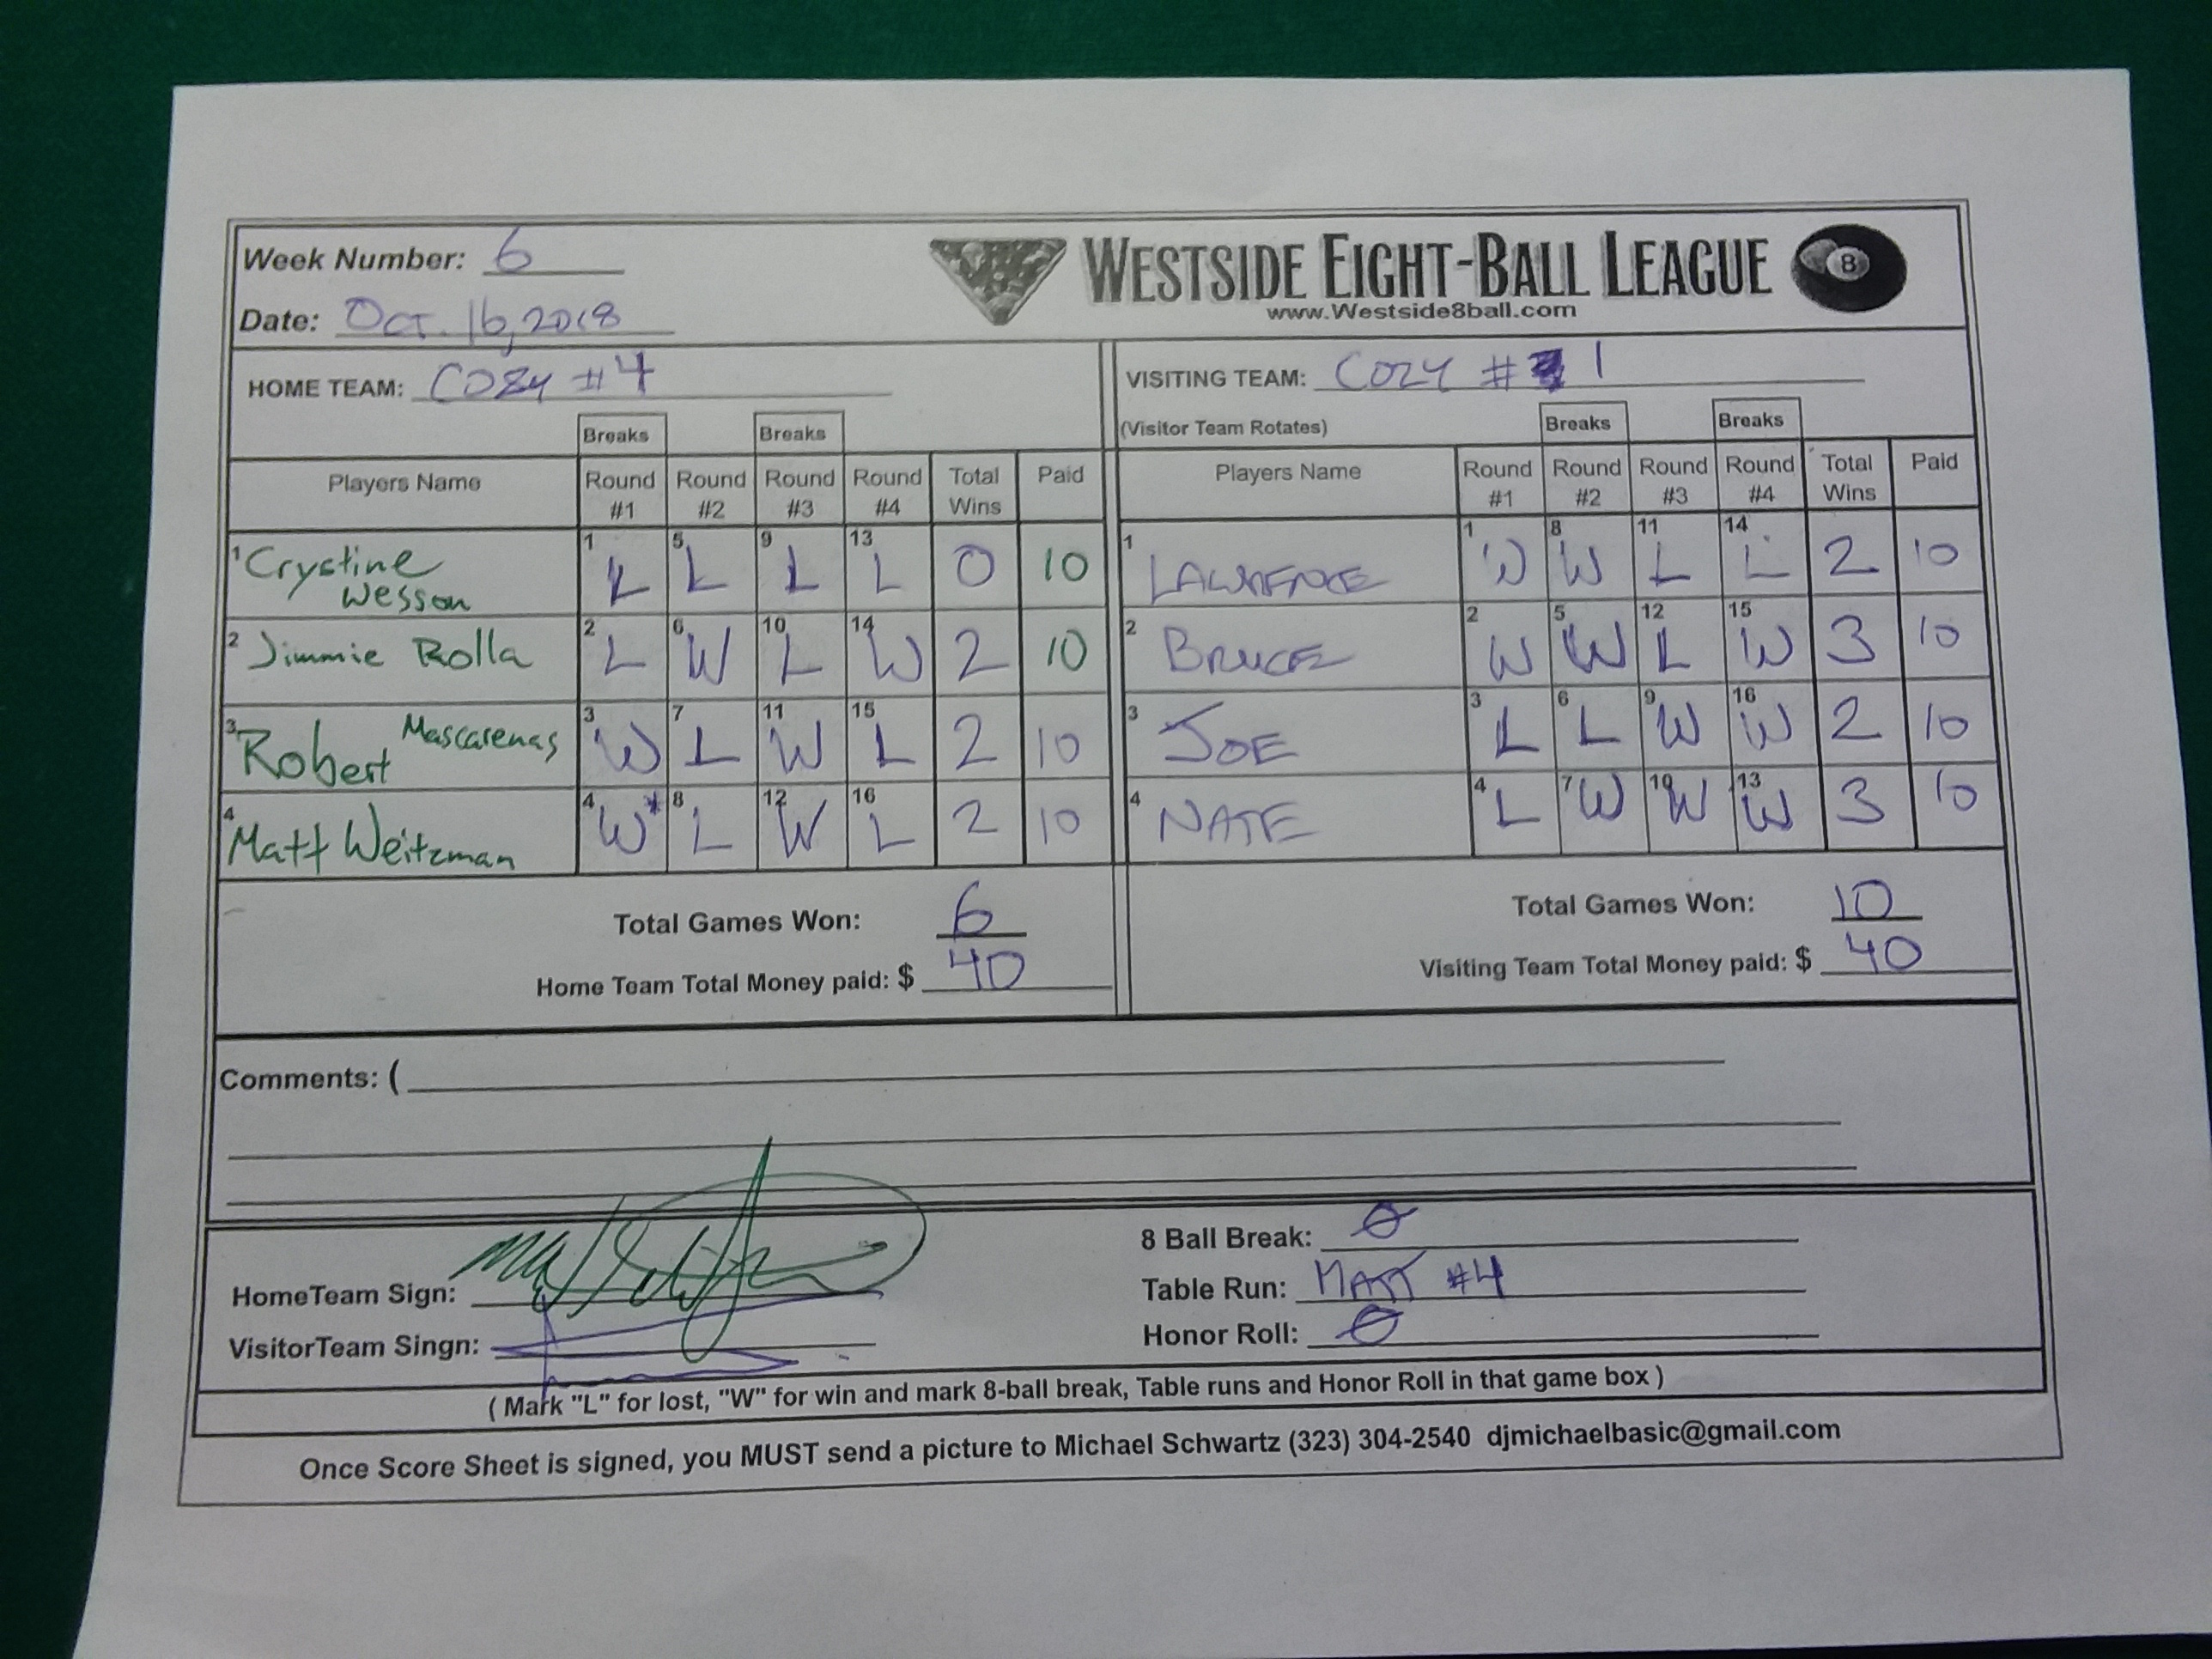 Week Number: 6
WESTSIDE EIGHT-BALL LEAGUE
8
www.Westside8ball.com
Date: Oct. 16, 2018
HOME TEAM: COZY #4
VISITING TEAM: COZY # 1
(Visitor Team Rotates)
Breaks Breaks Breaks Breaks
Players Name Round #1 Round #2 Round #3 Round #4 Total Wins Paid
Players Name Round #1 Round #2 Round #3 Round #4 Total Wins Paid
1 Crystine Wesson 1 L 5 L 9 L 13 L 0 10
1 LAWRENCE 1 W 8 W 11 L 14 L 2 10
2 Jimmie Rolla 2 L 6 W 10 L 14 W 2 10
2 BRUCE 2 W 5 W 12 L 15 W 3 10
3 Robert Mascarenas 3 W 7 L 11 W 15 L 2 10
3 JOE 3 L 6 L 9 W 16 W 2 10
4 Matt Weitzman 4 W* 8 L 12 W 16 L 2 10
4 NATE 4 L 7 W 10 W 13 W 3 10
Total Games Won: 6
Total Games Won: 10
Home Team Total Money paid: $ 40
Visiting Team Total Money paid: $ 40
Comments: (
8 Ball Break: Ø
HomeTeam Sign:
Table Run: MATT #4
VisitorTeam Singn:
Honor Roll: Ø
( Mark "L" for lost, "W" for win and mark 8-ball break, Table runs and Honor Roll in that game box )
Once Score Sheet is signed, you MUST send a picture to Michael Schwartz (323) 304-2540 djmichaelbasic@gmail.com